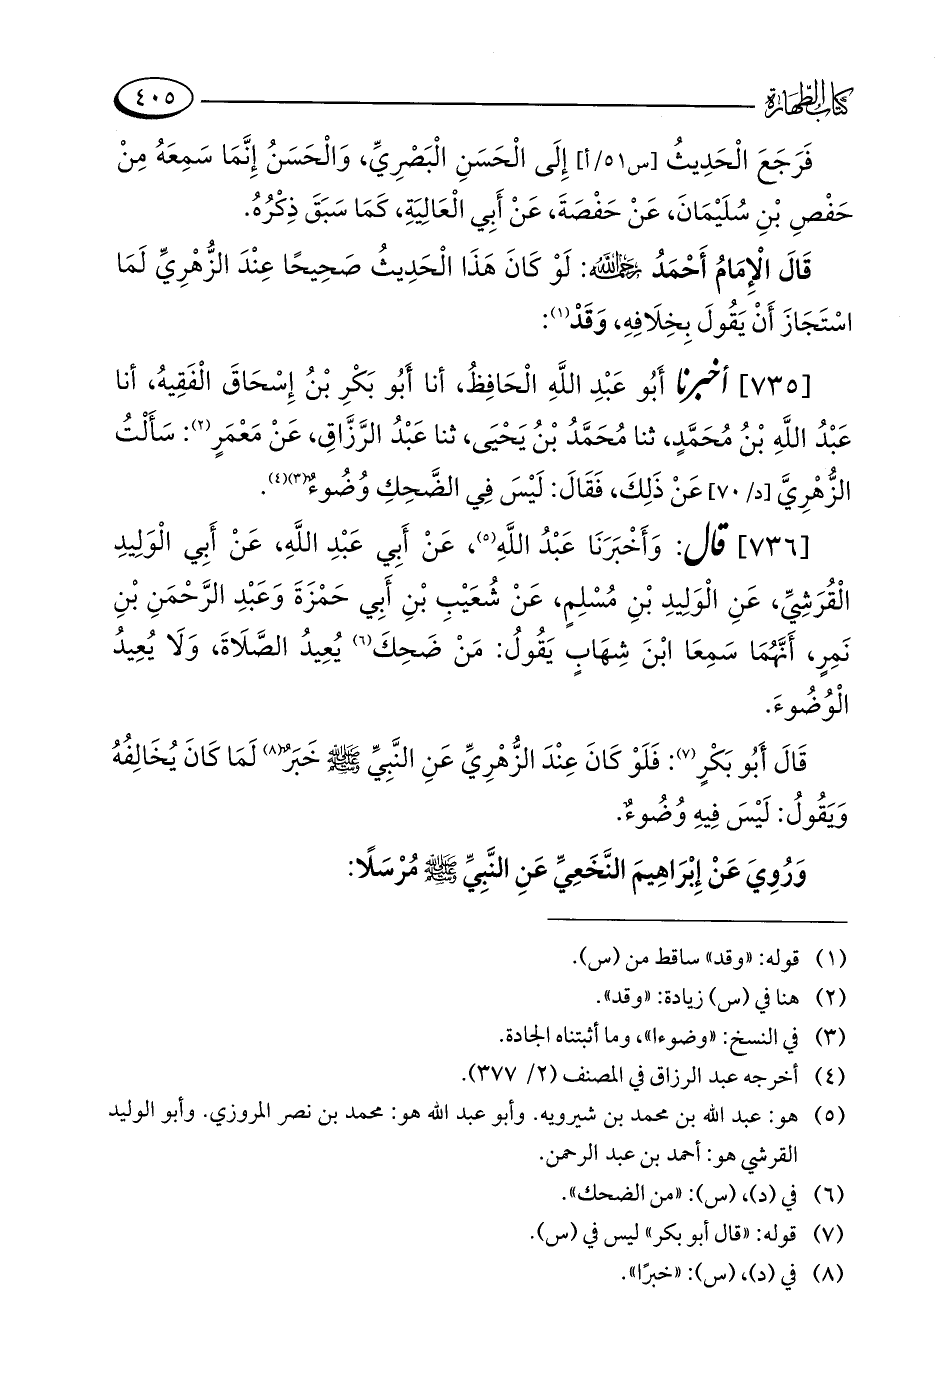 كتاب الطهارة ٤٠٥
فَرَجَعَ الْحَدِيثُ [س٥١/أ] إِلَى الْحَسَنِ الْبَصْرِيِّ، وَالْحَسَنُ إِنَّمَا سَمِعَهُ مِنْ
حَفْصِ بْنِ سُلَيْمَانَ، عَنْ حَفْصَةَ، عَنْ أَبِي الْعَالِيَةِ، كَمَا سَبَقَ ذِكْرُهُ.
قَالَ الْإِمَامُ أَحْمَدُ رَحِمَهُ اللَّهُ: لَوْ كَانَ هَذَا الْحَدِيثُ صَحِيحًا عِنْدَ الزُّهْرِيِّ لَمَا
اسْتَجَازَ أَنْ يَقُولَ بِخِلَافِهِ، وَقَدْ(١):
[٧٣٥] أخبرنا أَبُو عَبْدِ اللَّهِ الْحَافِظُ، أنا أَبُو بَكْرِ بْنُ إِسْحَاقَ الْفَقِيهُ، أنا
عَبْدُ اللَّهِ بْنُ مُحَمَّدٍ، ثنا مُحَمَّدُ بْنُ يَحْيَى، ثنا عَبْدُ الرَّزَّاقِ، عَنْ مَعْمَرٍ(٢): سَأَلْتُ
الزُّهْرِيَّ [د/٧٠] عَنْ ذَلِكَ، فَقَالَ: لَيْسَ فِي الضَّحِكِ وُضُوءٌ(٣)(٤).
[٧٣٦] قال: وَأَخْبَرَنَا عَبْدُ اللَّهِ(٥)، عَنْ أَبِي عَبْدِ اللَّهِ، عَنْ أَبِي الْوَلِيدِ
الْقُرَشِيِّ، عَنِ الْوَلِيدِ بْنِ مُسْلِمٍ، عَنْ شُعَيْبِ بْنِ أَبِي حَمْزَةَ وَعَبْدِ الرَّحْمَنِ بْنِ
نَمِرٍ، أَنَّهُمَا سَمِعَا ابْنَ شِهَابٍ يَقُولُ: مَنْ ضَحِكَ(٦) يُعِيدُ الصَّلَاةَ، وَلَا يُعِيدُ
الْوُضُوءَ.
قَالَ أَبُو بَكْرٍ(٧): فَلَوْ كَانَ عِنْدَ الزُّهْرِيِّ عَنِ النَّبِيِّ ﷺ خَبَرٌ(٨) لَمَا كَانَ يُخَالِفُهُ
وَيَقُولُ: لَيْسَ فِيهِ وُضُوءٌ.
وَرُوِيَ عَنْ إِبْرَاهِيمَ النَّخَعِيِّ عَنِ النَّبِيِّ ﷺ مُرْسَلًا:
(١) قوله: «وقد» ساقط من (س).
(٢) هنا في (س) زيادة: «وقد».
(٣) في النسخ: «وضوءا»، وما أثبتناه الجادة.
(٤) أخرجه عبد الرزاق في المصنف (٢/ ٣٧٧).
(٥) هو: عبد الله بن محمد بن شيرويه. وأبو عبد الله هو: محمد بن نصر المروزي. وأبو الوليد
القرشي هو: أحمد بن عبد الرحمن.
(٦) في (د)، (س): «من الضحك».
(٧) قوله: «قال أبو بكر» ليس في (س).
(٨) في (د)، (س): «خبرًا».